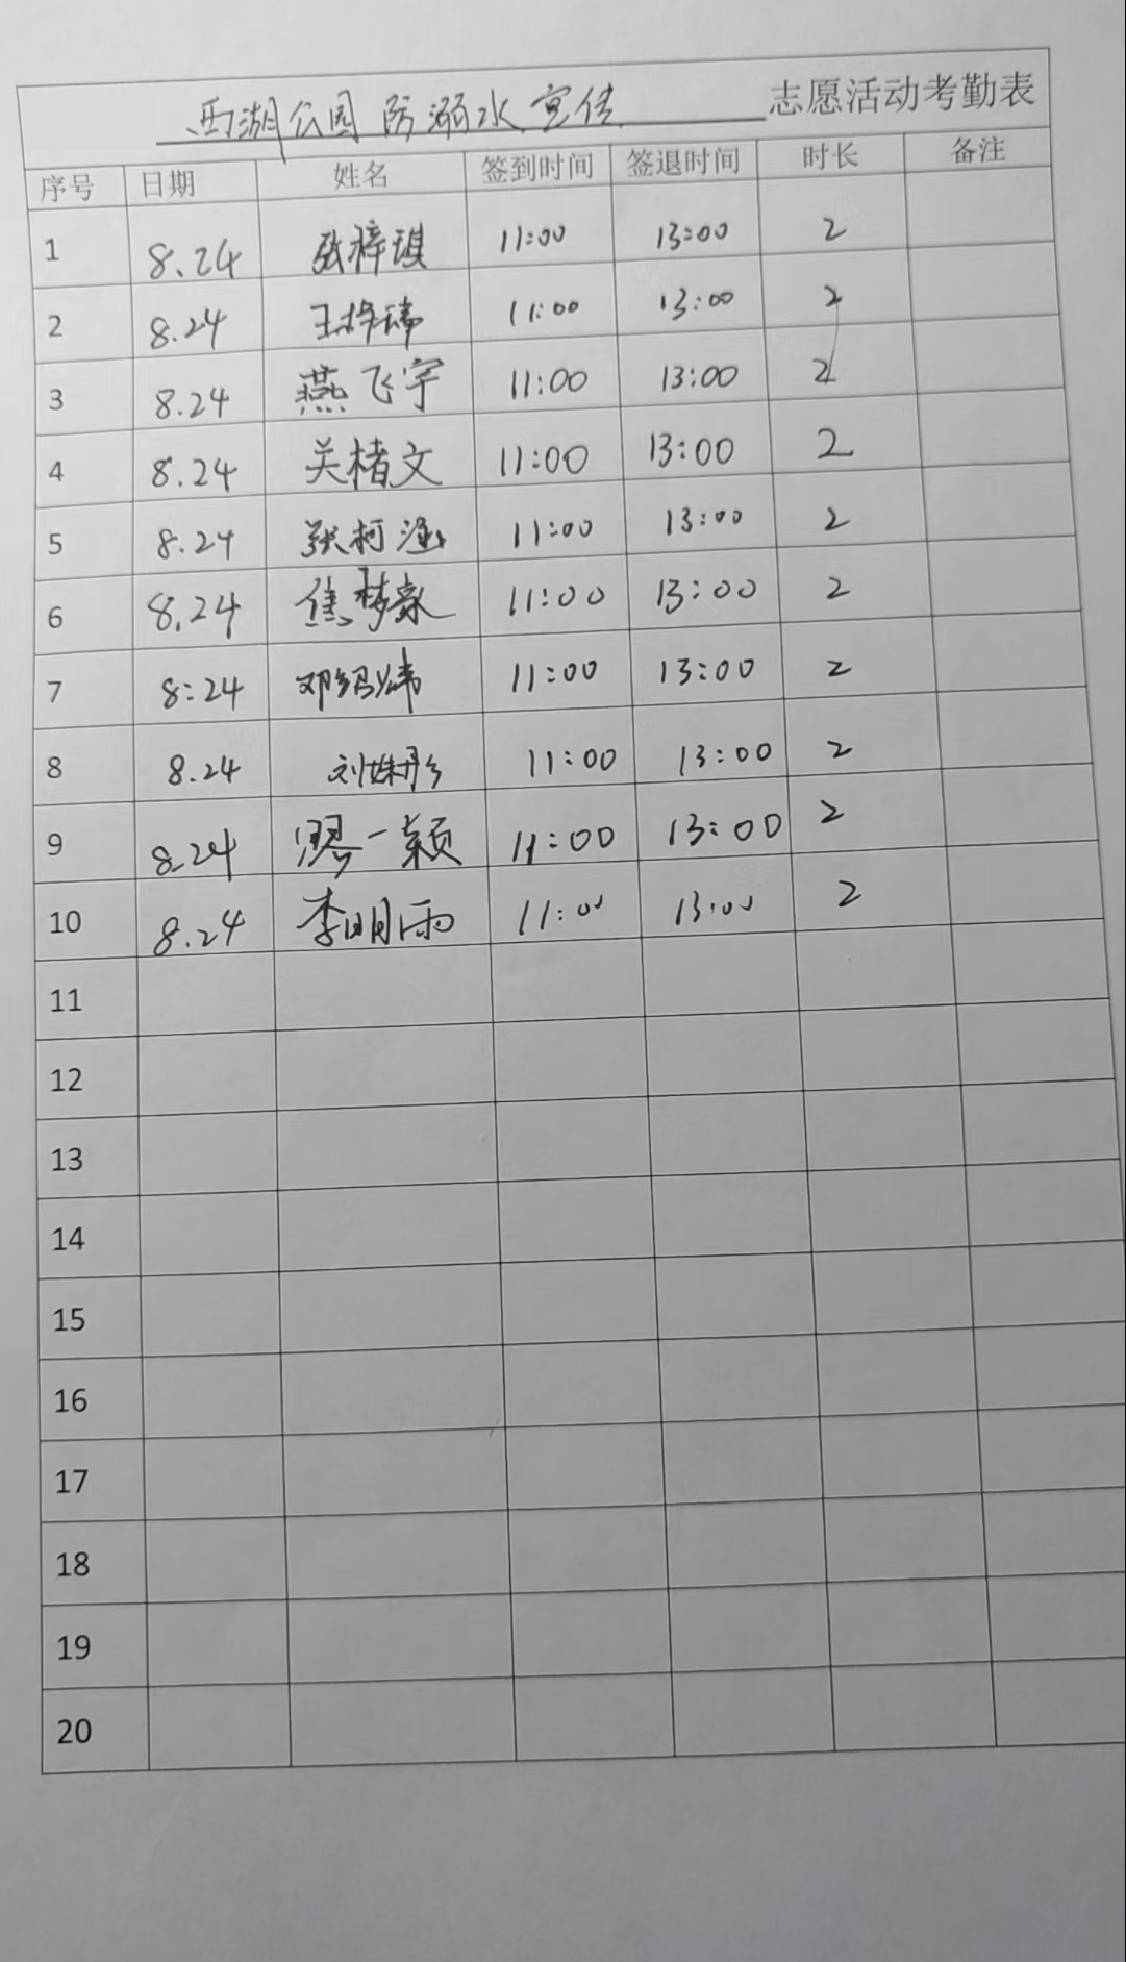 西湖公园防溺水宣传 志愿活动考勤表
序号 日期 姓名 签到时间 签退时间 时长 备注
1 8.24 张梓琪 11:00 13:00 2
2 8.24 11:00 13:00 2
3 8.24 燕飞宇 11:00 13:00 2
4 8.24 关楮文 11:00 13:00 2
5 8.24 张柯涵 11:00 13:00 2
6 8.24 焦梦豪 11:00 13:00 2
7 8:24 邓绍炜 11:00 13:00 2
8 8.24 刘姝彤 11:00 13:00 2
9 8.24 一颖 11:00 13:00 2
10 8.24 李明雨 11:00 13:00 2
11
12
13
14
15
16
17
18
19
20